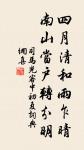 四月清和雨乍晴
南山當户轉分明
司馬光客中初夏詞典
網喜